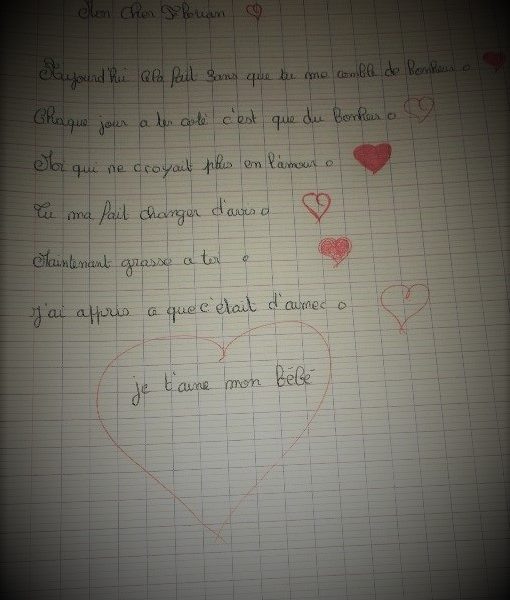 Mon cher
Aujourd'hui ça fait 3ans que tu me comble de Bonheur
Chaque jour a tes coté c'est que du Bonheur
Moi qui ne croyait plus en l'amour
Tu ma fait changer d'avis
Maintenant grasse a toi
J'ai appris a que c'était d'aimer
je t'aime mon BéBé